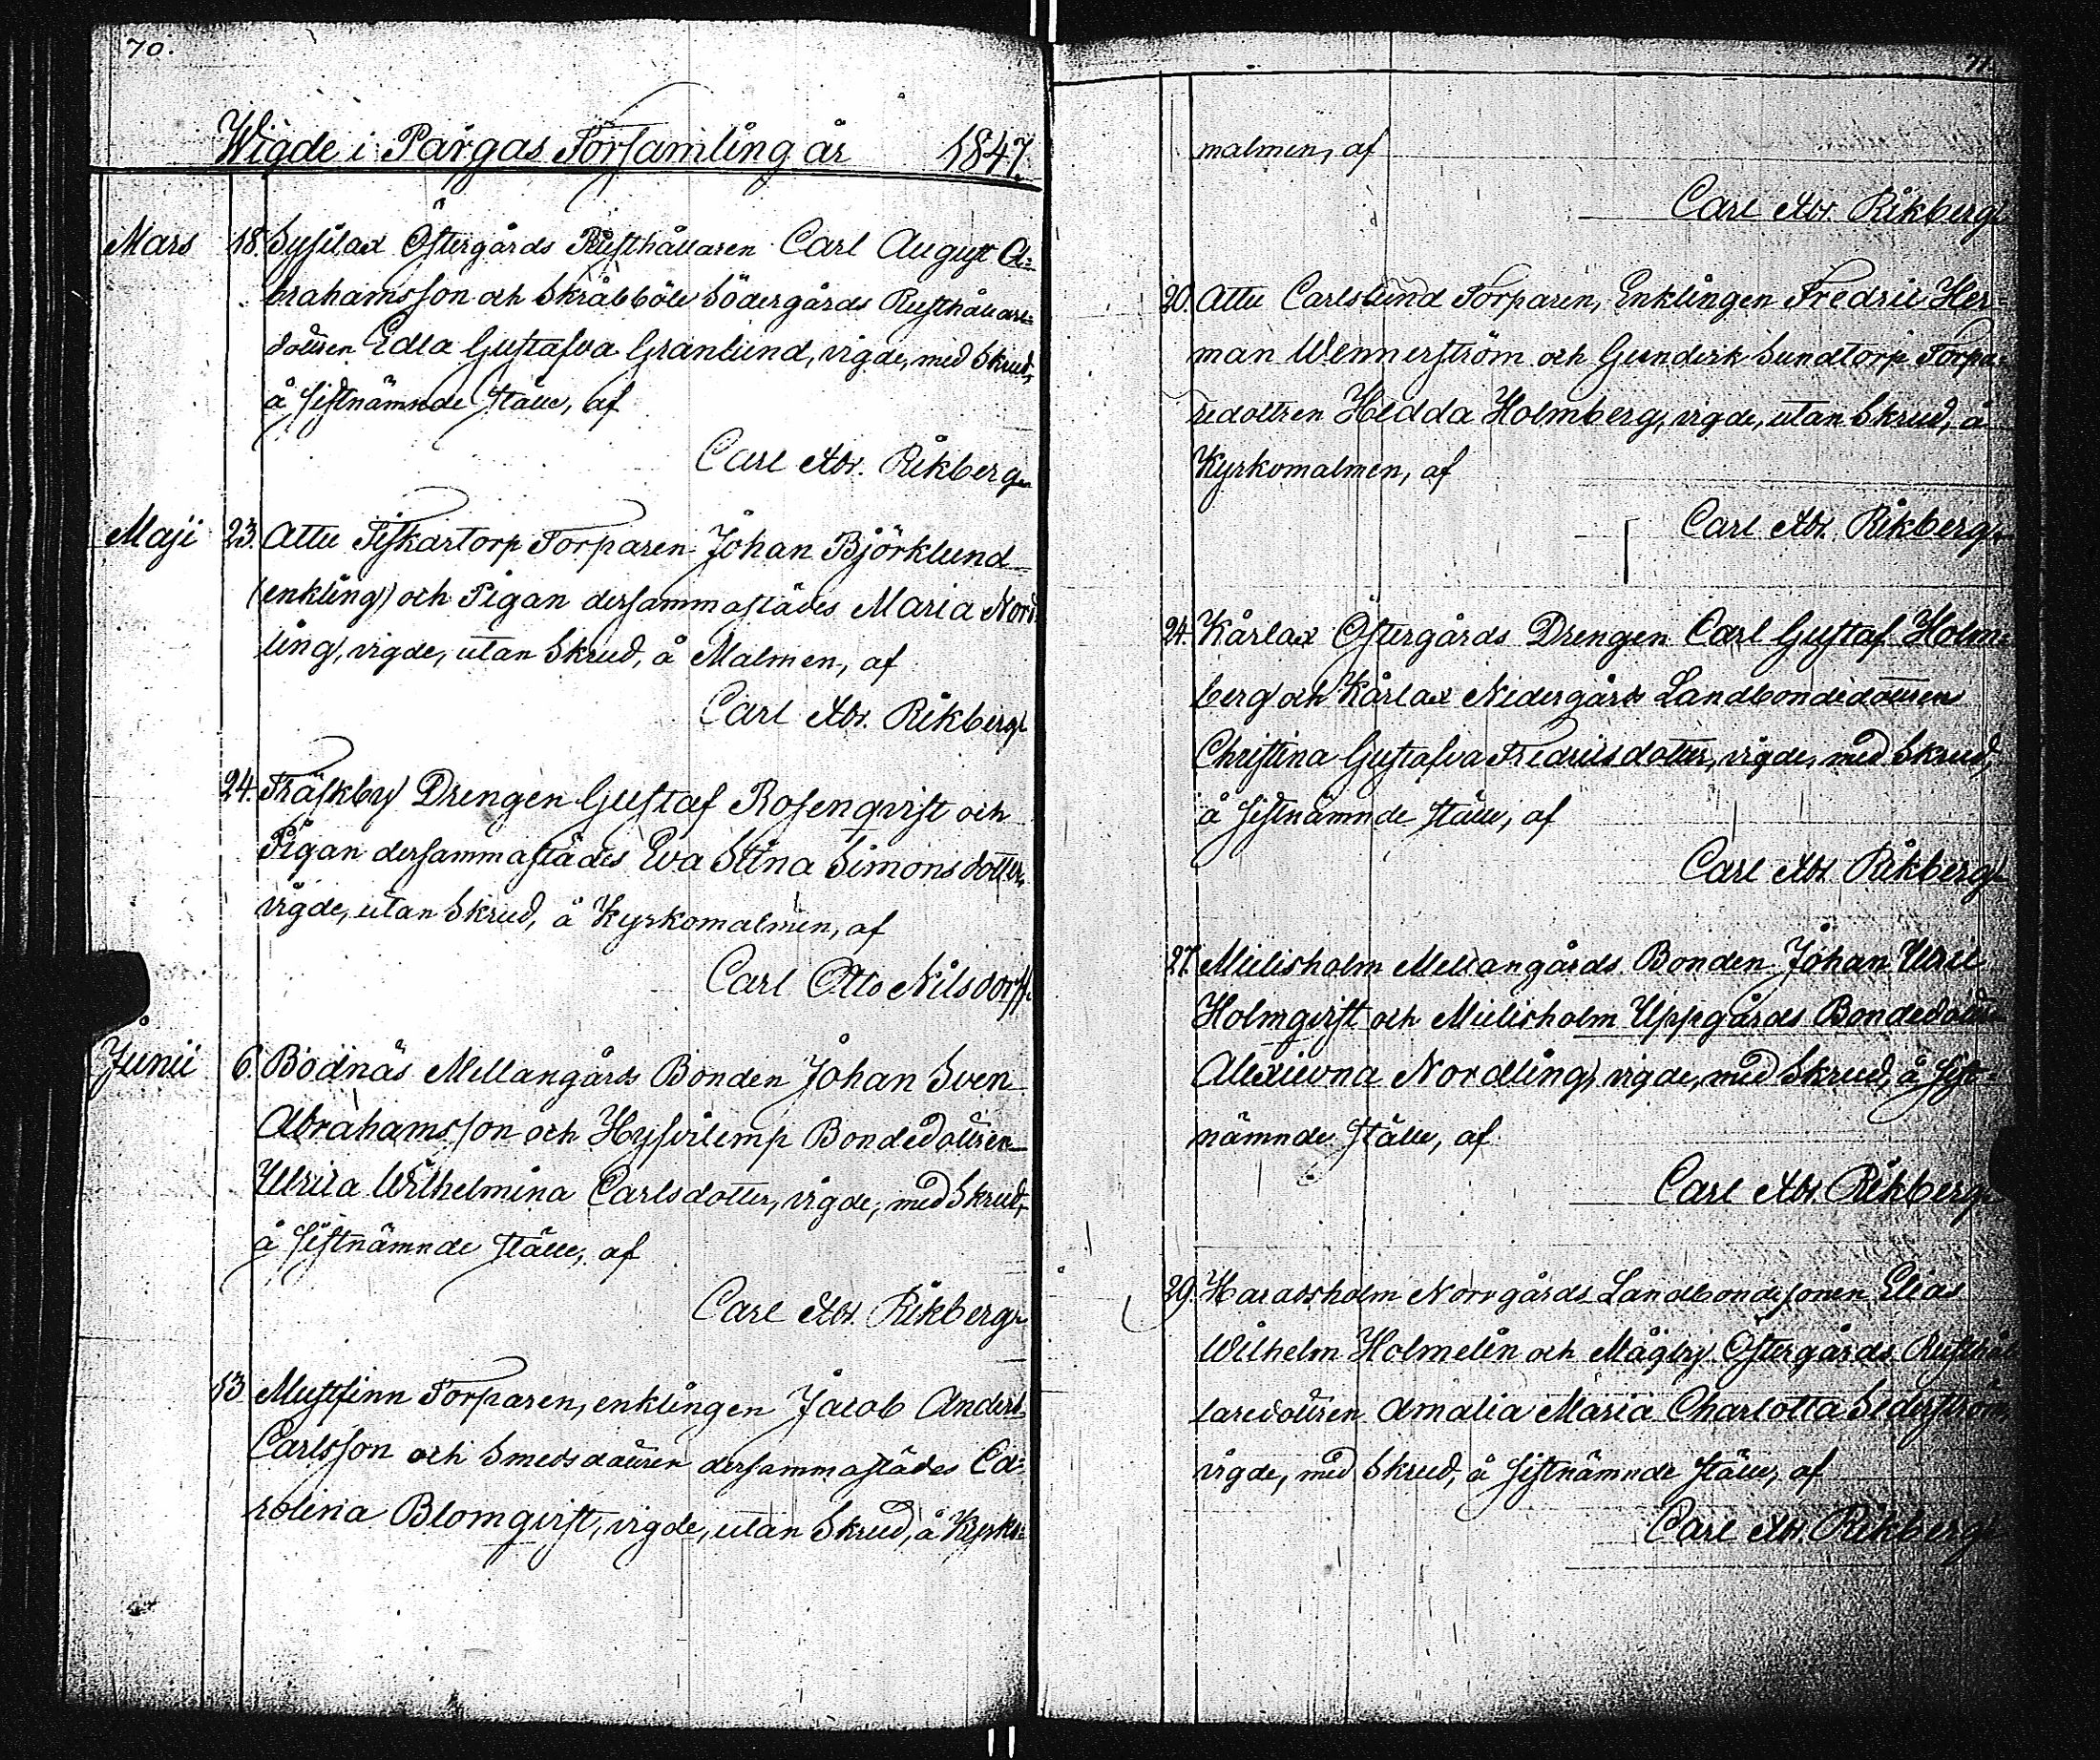 70.
Wigde i Pargas Församling år 1847.
Mars 18. Sysilax Östergårds Rusthållaren Carl August A=
brahamsson och Skräbböle Södergårds Rusthållare=
dottren Edla Gustafva Granlund, vigde, med Skrud,
å sistnämnde ställe, af
Carl Abr. Rikberg
Maji 23. Attu Fiskartorp Torparen Johan Björklund
(enkling) och Pigan dersammastädes Maria Nord
ling, vigde, utan Skrud, å Malmen, af
Carl Abr. Rikberg
24. Träskby Drengen Gustaf Rosenqvist och
Pigan dersammastädes Eva Stina Simonsdotter,
vigde, utan Skrud, å Kyrkomalmen, af
Carl Otto Nilsdorff.
Junii 6. Bodnäs Mellangårds Bonden Johan Sven
Abrahamsson och Hysvikemp Bondedottren
Ulrica Wilhelmina Carlsdotter, vigde, med Skrud,
å sistnämnde ställe, af
Carl Abr. Rikberg
13. Mustfinn Torparen, enklingen Jacob Anders
Carlsson och Smedsdottren dersammastädes Ca=
rolina Blomqvist, vigde, utan Skrud, å Kyrko=
71.
malmen, af
Carl Abr. Rikberg
20. Attu Carlslund Torparen, Enklingen Fredric Her=
man Wennerström och Gundvik Sundtorp Torpa=
redottren Hedda Holmberg, vigde, utan Skrud, å
Kyrkomalmen, af
Carl Abr. Rikberg
24. Kårlax Östergårds Drengen Carl Gustaf Holm=
berg och Kårlax Nedergårds Landbondedottren
Christina Gustafva Fredricsdotter, vigde, med Skrud,
å sistnämnde ställe, af
Carl Abr. Rikberg
27. Mielisholm Mellangårds Bonden Johan Ulric
Holmqvist och Mielisholm Uppgårds Bondedottren
Alexievna Nordling, vigde, med Skrud, å sist=
nämnde ställe, af
Carl Abr. Rikberg
29. Haradsholm Norrgårds Landbondesonen Elias
Wilhelm Holmelin och Mågby Östergårds Rusthål
laredottren Amalia Maria Charlotta Sederström
vigde, med Skrud, å sistnämnde ställe, af
Carl Abr. Rikberg